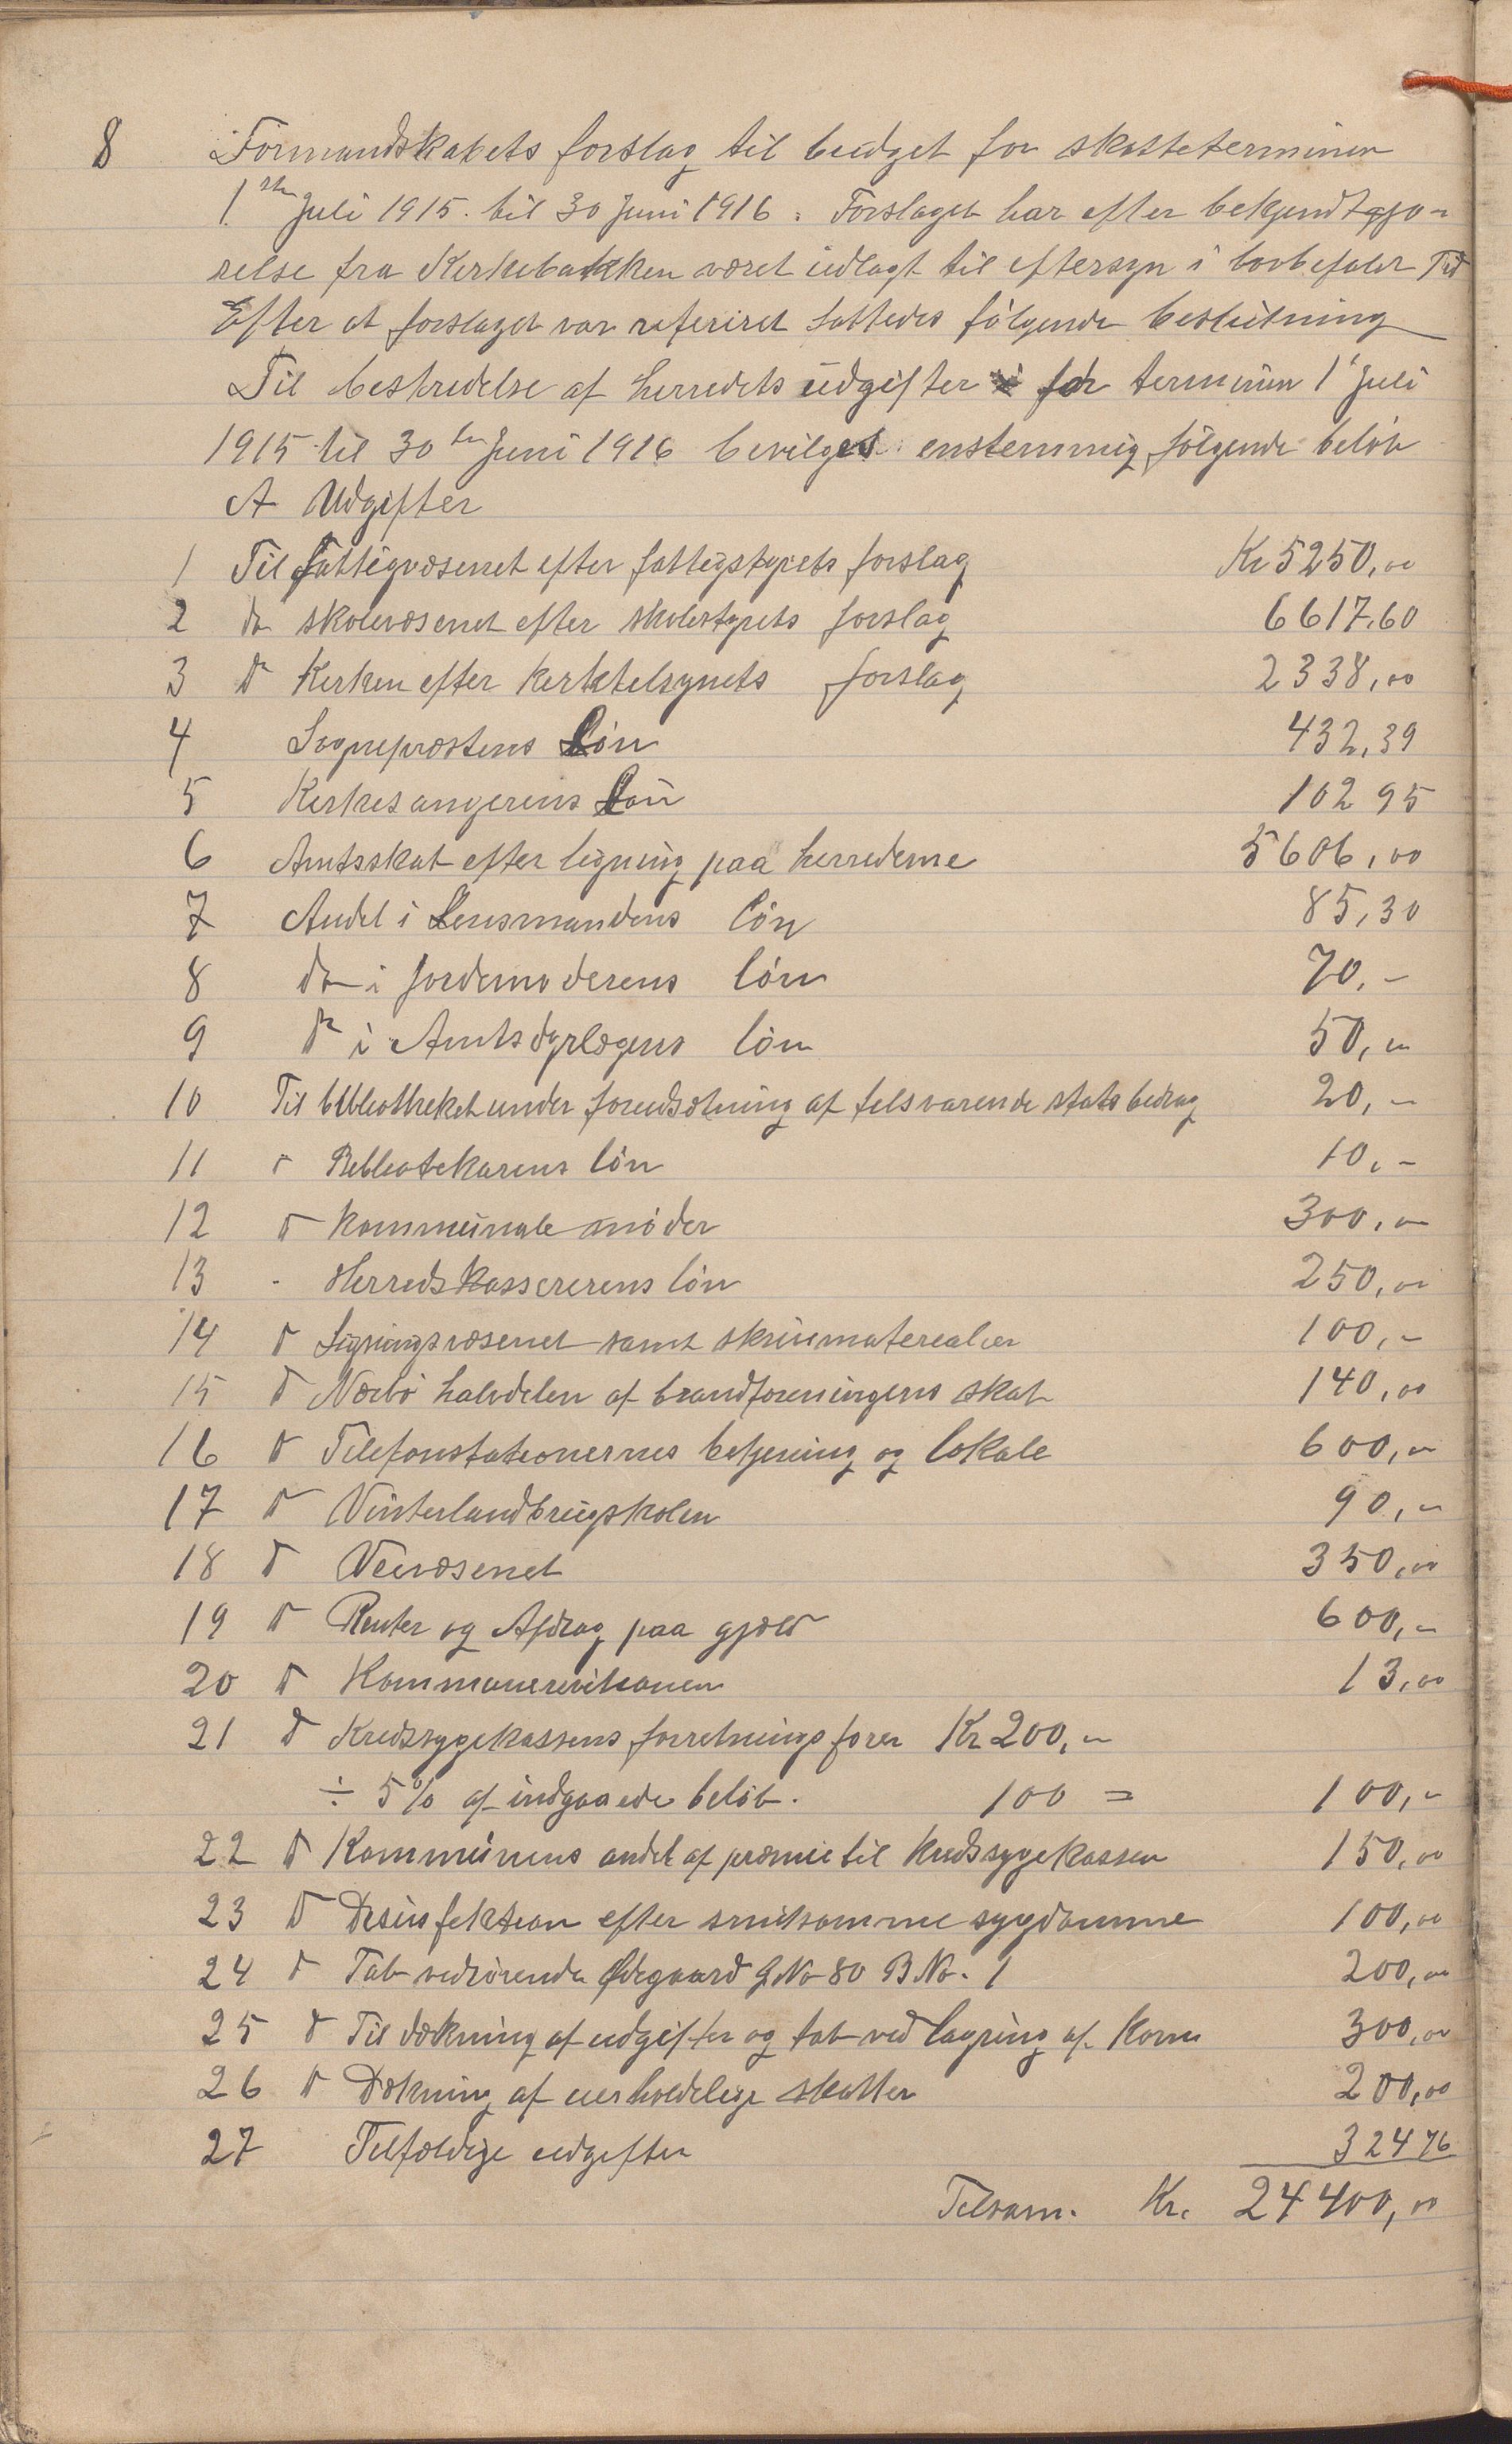 8 Formandskabets forslag til budget for skatteterminen
1ste Juli 1915 til 30 Juni 1916. Forslaget har efter bekjendtgjø-
relse fra Kirkebakken været udlagt til eftersyn i lovbefalet Tid
Efter at forslaget var referiret fattedes følgende beslutning
Til bestridelse af herredets udgifter for terminen 1 Juli
1915 til 30te Juni 1916 bevilges enstemmig følgende beløb
A Udgifter
1 Til fattigvæsenet efter fattigstyrets forslag Kr 5250,00
2 do skolevæsenet efter skolestyrets forslag 6617,60
3 do Kirken efter kirketilsynets forslag 2338,00
4 Sogneprestens Løn 432,39
5 Kirkesangerens Løn 102 95
6 Amtsskat efter ligning paa herrederne 5606,00
7 Andel i Lensmandens løn 85,30
8 do i jordemoderens løn 70,-
9 do i Amtsdyrlægens løn 50,-
10 Til bibliotheket under forudsætning af tilsvarende statsbidrag 20,-
11 " Bibliotekarens løn 10,-
12 do kommunale møder 300,-
13 - Herredskassererens løn 250,00
14 do Ligningsvæsenet samt skrivmaterialier 100,-
15 do Nærbø halvdelen af brandforeningens skat 140,00
16 do Telefonstationernes betjening og lokale 600,-
17 do Vinterlandbrugskolen 90,-
18 do Veivæsenet 350,00
19 do Renter og Afdrag paa gjæld 600,-
20 do Kommunerevisionen 13,00
21 do Kredssygekassens forretningsfører Kr 200,-
÷ 5% af indgaaede beløb. 100 = 100,-
22 do Kommunens andel af præmie til kredssygekassen 150,00
23 do Desinfektion efter smitsomme sygdomme 100,00
24 do Tab vedrørende Ødegaard G.No 80 B.No. 1 200,00
25 do Til dækning af udgifter og tab ved lagring af korn 300,00
26 do Dækning af uerholdelige skatter 200,00
27 Tilfældige udgifter 324 76
Tilsam. Kr. 24400,00